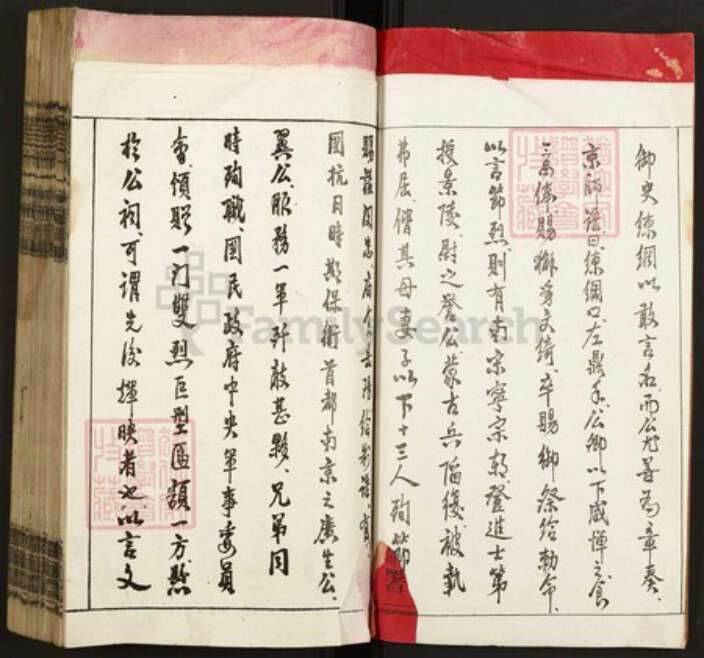 御史練綱以敢言名而公尤善為章奏、
京師語曰練綱口左鼎手、公卿以下咸憚之食
三高俸賜獬豸文綺、卒賜御祭給勅命、
以言節烈則有南宋寧宗朝登進士第
授景陵尉之譽公蒙古兵陷復被執
弗屈、偕其母妻子以下十三人殉節
國抗日時期保衛首都南京之廣生公、
異公服務一軍歼敵甚夥、兄弟同
時殉職、國民政府中央軍事委員
會、頒贈一门雙烈巨型匾額一方懸
於公祠、可謂先後揮映者也以言文
FamilySearch